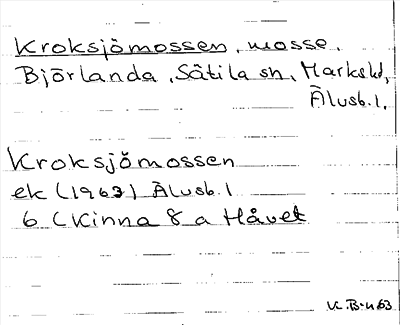 Kroksjömossen, mosse,
Björlanda, Sätila sn, Marks hd,
Älvsb. l.
Kroksjömossen
ek (1963) Älvsb. l
6 C Kinna 8 a Håvet
K. B-n 63